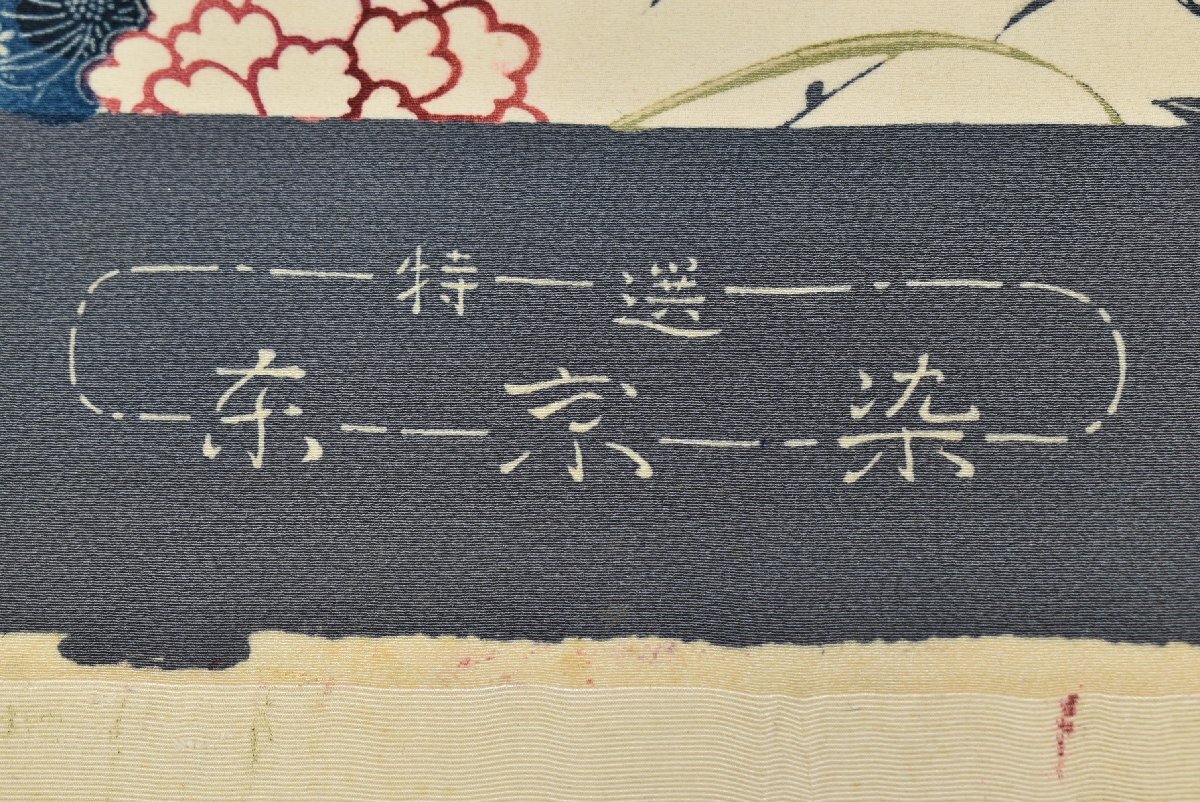 特選
东京染